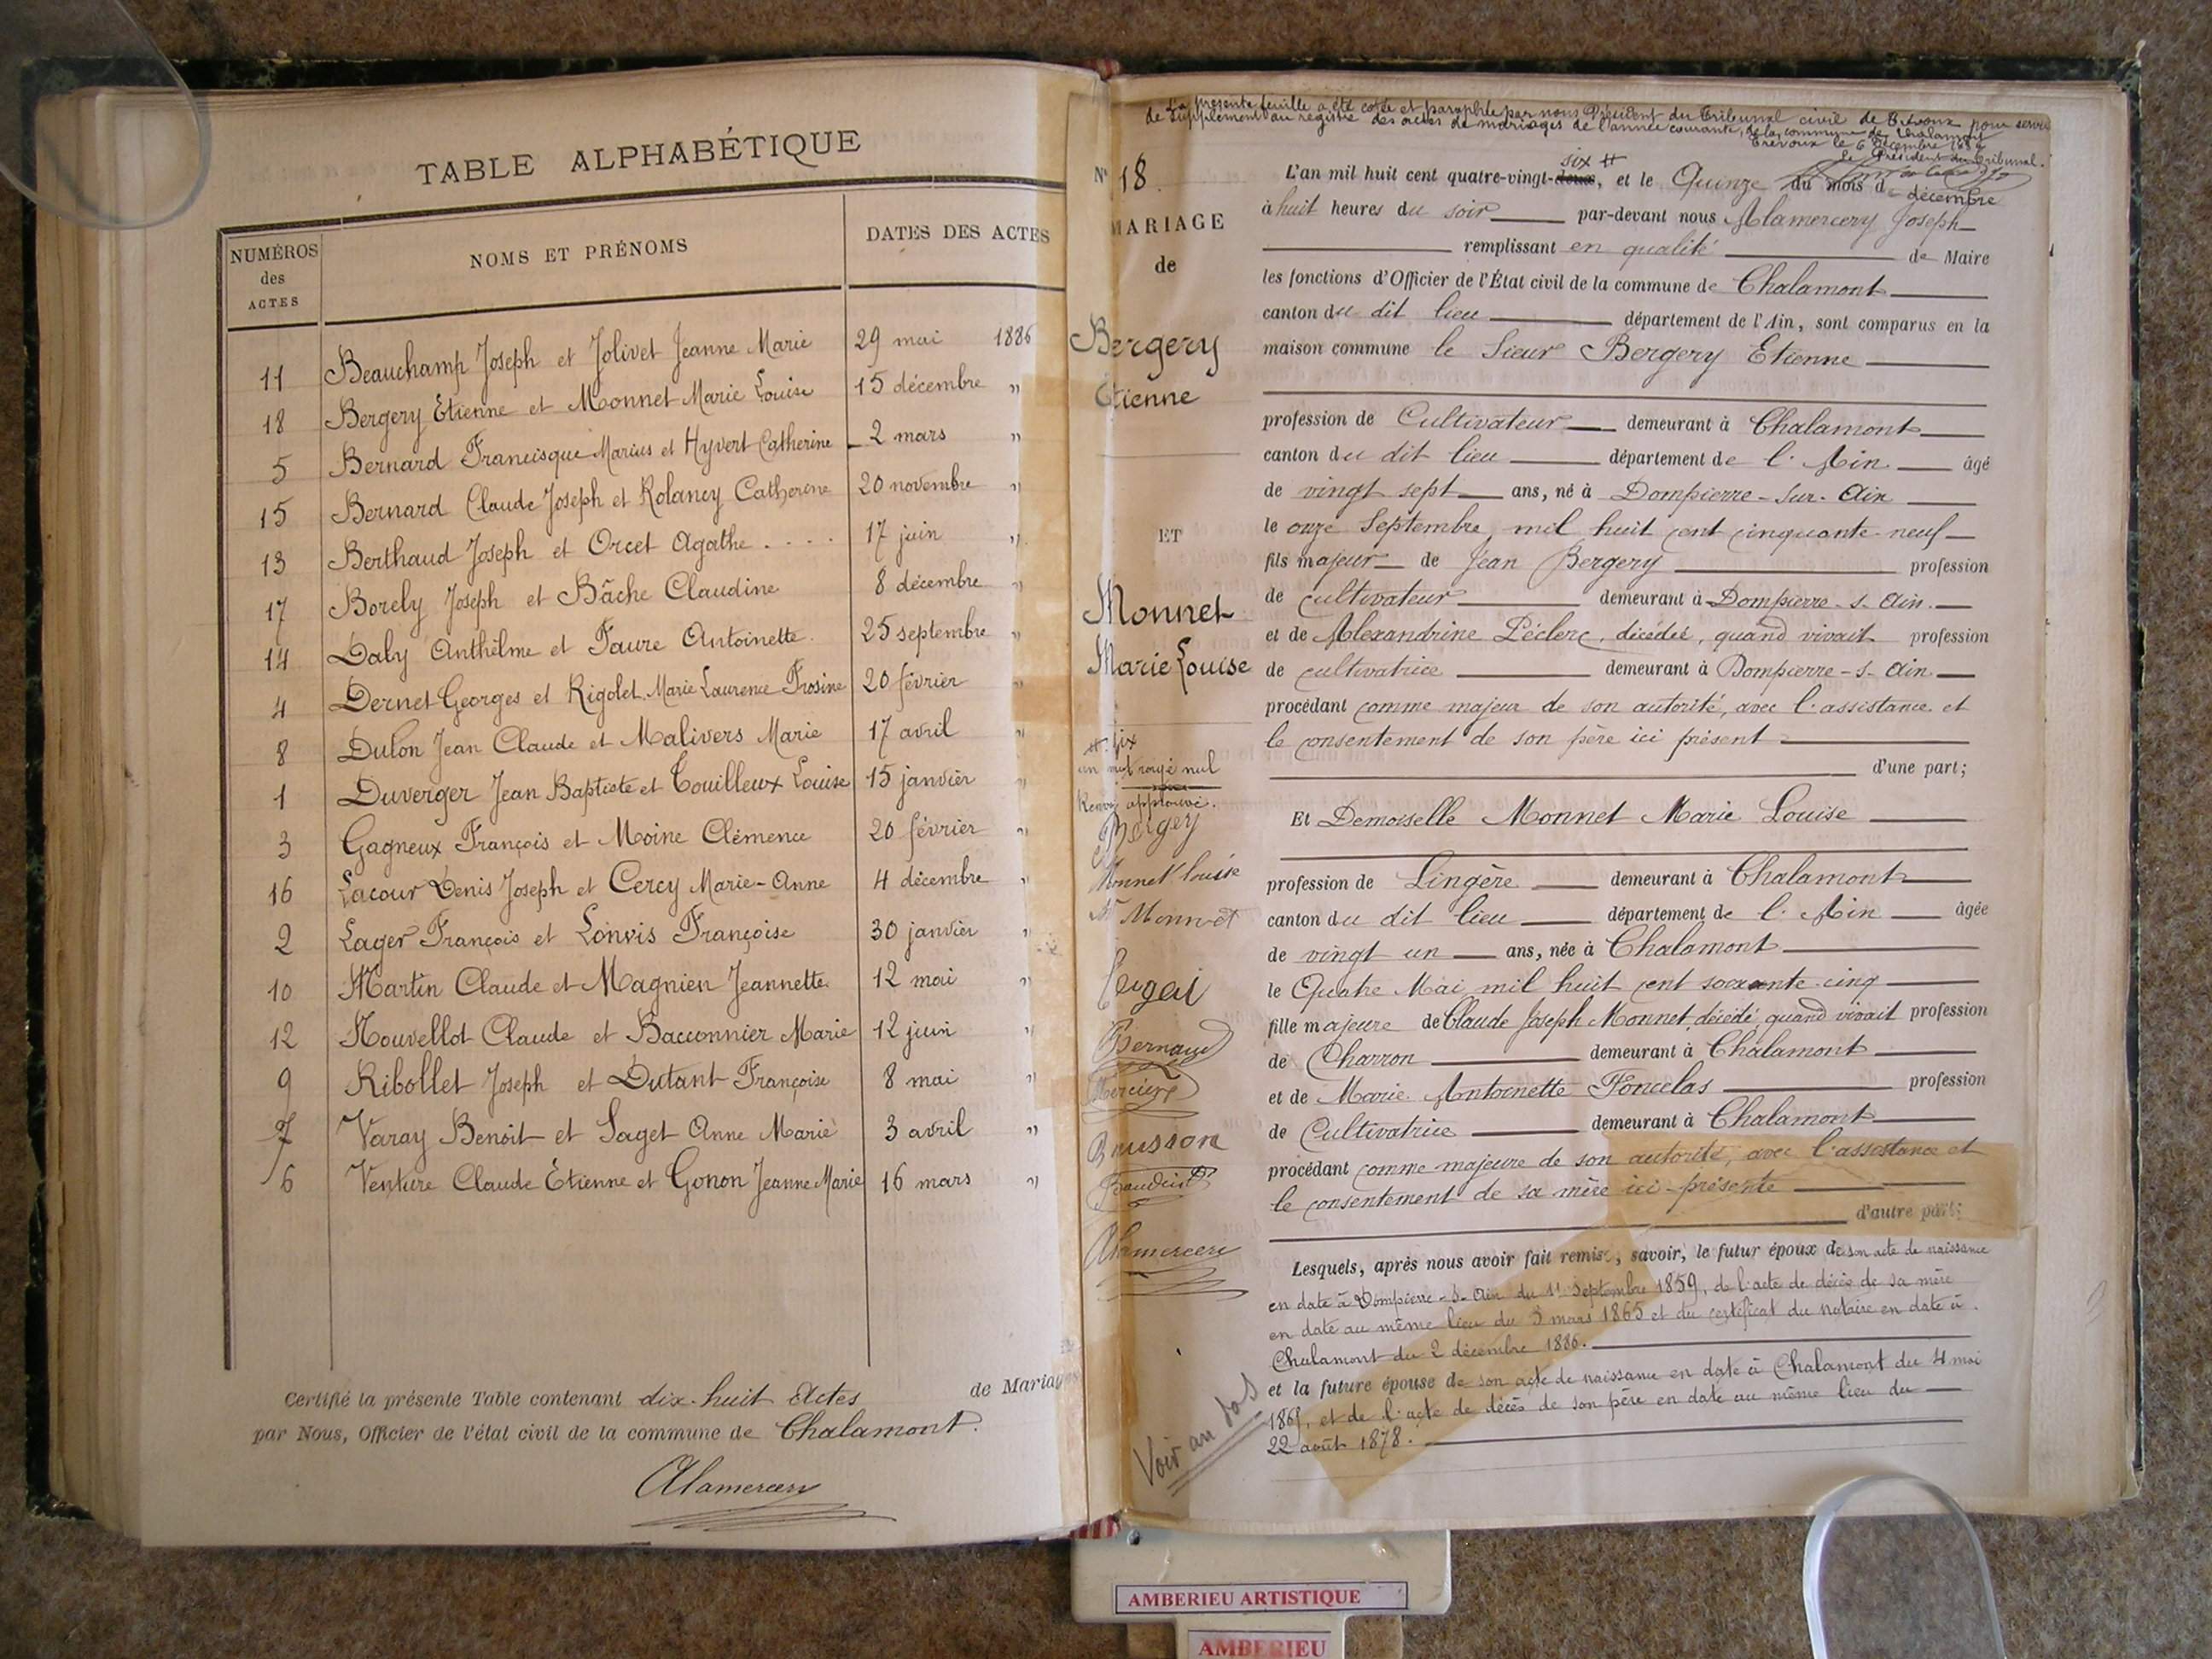 TABLE ALPHABÉTIQUE
NUMÉROS des ACTES
NOMS ET PRÉNOMS
DATES DES ACTES
11 Beauchamp Joseph et Jolivet Jeanne Marie 29 mai 1886
18 Bergery Etienne et Monnet Marie Louise 15 décembre "
5 Bernard Francisque Marius et Hyvert Catherine 2 mars "
15 Bernard Claude Joseph et Rolancy Catherine 20 novembre "
13 Berthaud Joseph et Orcet Agathe . . . . 17 juin "
17 Borely Joseph et Bâche Claudine 8 décembre "
14 Daly Anthelme et Faure Antoinette 25 septembre "
4 Dernet Georges et Rigolet Marie Laurence Frosine 20 février "
8 Dulon Jean Claude et Malivers Marie 17 avril "
1 Duverger Jean Baptiste et Touilleux Louise 15 janvier "
3 Gagneux François et Moine Clémence 20 février "
16 Lacour Denis Joseph et Cercy Marie-Anne 4 décembre "
2 Lager François et Lonvis Françoise 30 janvier "
10 Martin Claude et Magnien Jeannette 12 mai "
12 Nouvellot Claude et Bacconnier Marie 12 juin "
9 Ribollet Joseph et Dutant Françoise 8 mai "
7 Varay Benoit et Saget Anne Marie 3 avril "
6 Venture Claude Étienne et Gonon Jeanne Marie 16 mars "
Certifié la présente Table contenant dix-huit Actes de Mariages
par Nous, Officier de l'état civil de la commune de Chalamont.
Alamercery
La présente feuille a été cotée et paraphée par nous Président du Tribunal civil de Trévoux pour servir
de supplément au registre des actes de mariages de l'année courante, de la commune de Chalamont
Trévoux le 6 Décembre
Le Président du Tribunal.
N° 18
MARIAGE
de
Bergery
Etienne
ET
Monnet
Marie Louise
# six
un mot rayé nul
Renvoi approuvé.
Bergery
Monnet louise
Monnet
Bernard
Mercier
Buisson
Baudin
Alamercery
Voir au dos
six #
L'an mil huit cent quatre-vingt-deux, et le Quinze du mois de décembre
à huit heures du soir par-devant nous Alamercery Joseph
remplissant en qualité de Maire
les fonctions d'Officier de l'État civil de la commune de Chalamont
canton du dit lieu département de l'Ain, sont comparus en la
maison commune le Sieur Bergery Etienne
profession de Cultivateur demeurant à Chalamont
canton du dit lieu département de l'Ain âgé
de vingt sept ans, né à Dompierre-sur-Ain
le onze Septembre mil huit cent cinquante neuf
fils majeur de Jean Bergery profession
de cultivateur demeurant à Dompierre-s-Ain.
et de Alexandrine Léclerc, décédée, quand vivait profession
de cultivatrice demeurant à Dompierre-s-Ain
procédant comme majeur de son autorité, avec l'assistance et
le consentement de son père ici présent
d'une part;
Et Demoiselle Monnet Marie Louise
profession de Lingère demeurant à Chalamont
canton du dit lieu département de l'Ain âgée
de vingt un ans, née à Chalamont
le Quatre Mai mil huit cent soixante cinq
fille majeure de Claude Joseph Monnet décédé quand vivait profession
de Charron demeurant à Chalamont
et de Marie Antoinette Foncelas profession
de Cultivatrice demeurant à Chalamont
procédant comme majeure de son autorité, avec l'assistance et
le consentement de sa mère ici présente
d'autre part;
Lesquels, après nous avoir fait remise, savoir, le futur époux de son acte de naissance
en date à Dompierre-s-Ain du 11 Septembre 1859, de l'acte de décès de sa mère
en date au même lieu du 3 mars 1865 et du certificat du notaire en date à
Chalamont du 2 décembre 1886.
et la future épouse de son acte de naissance en date à Chalamont du 4 mai
1865, et de l'acte de décès de son père en date au même lieu du
22 août 1878.
AMBERIEU ARTISTIQUE
AMBERIEU